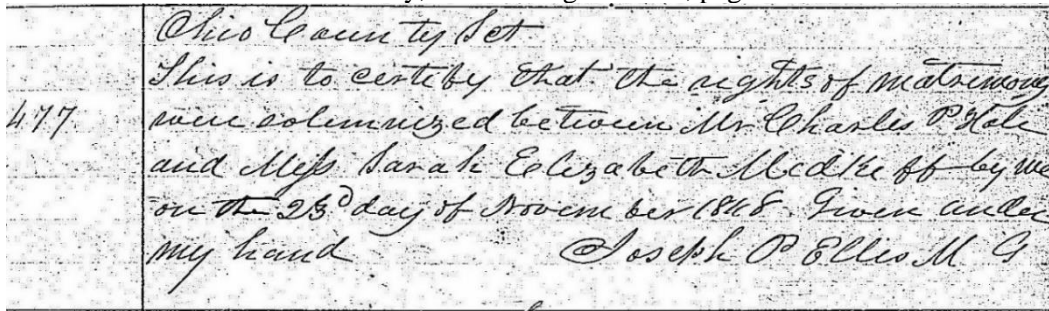 Ohio County Sct
This is to certify that the rights of matrimony
477 were solemnized between Mr Charles P Hale
and Miss Sarah Elizabeth Medke ff by me
on the 23d day of November 1848. Given under
my hand Joseph P Ellis M G